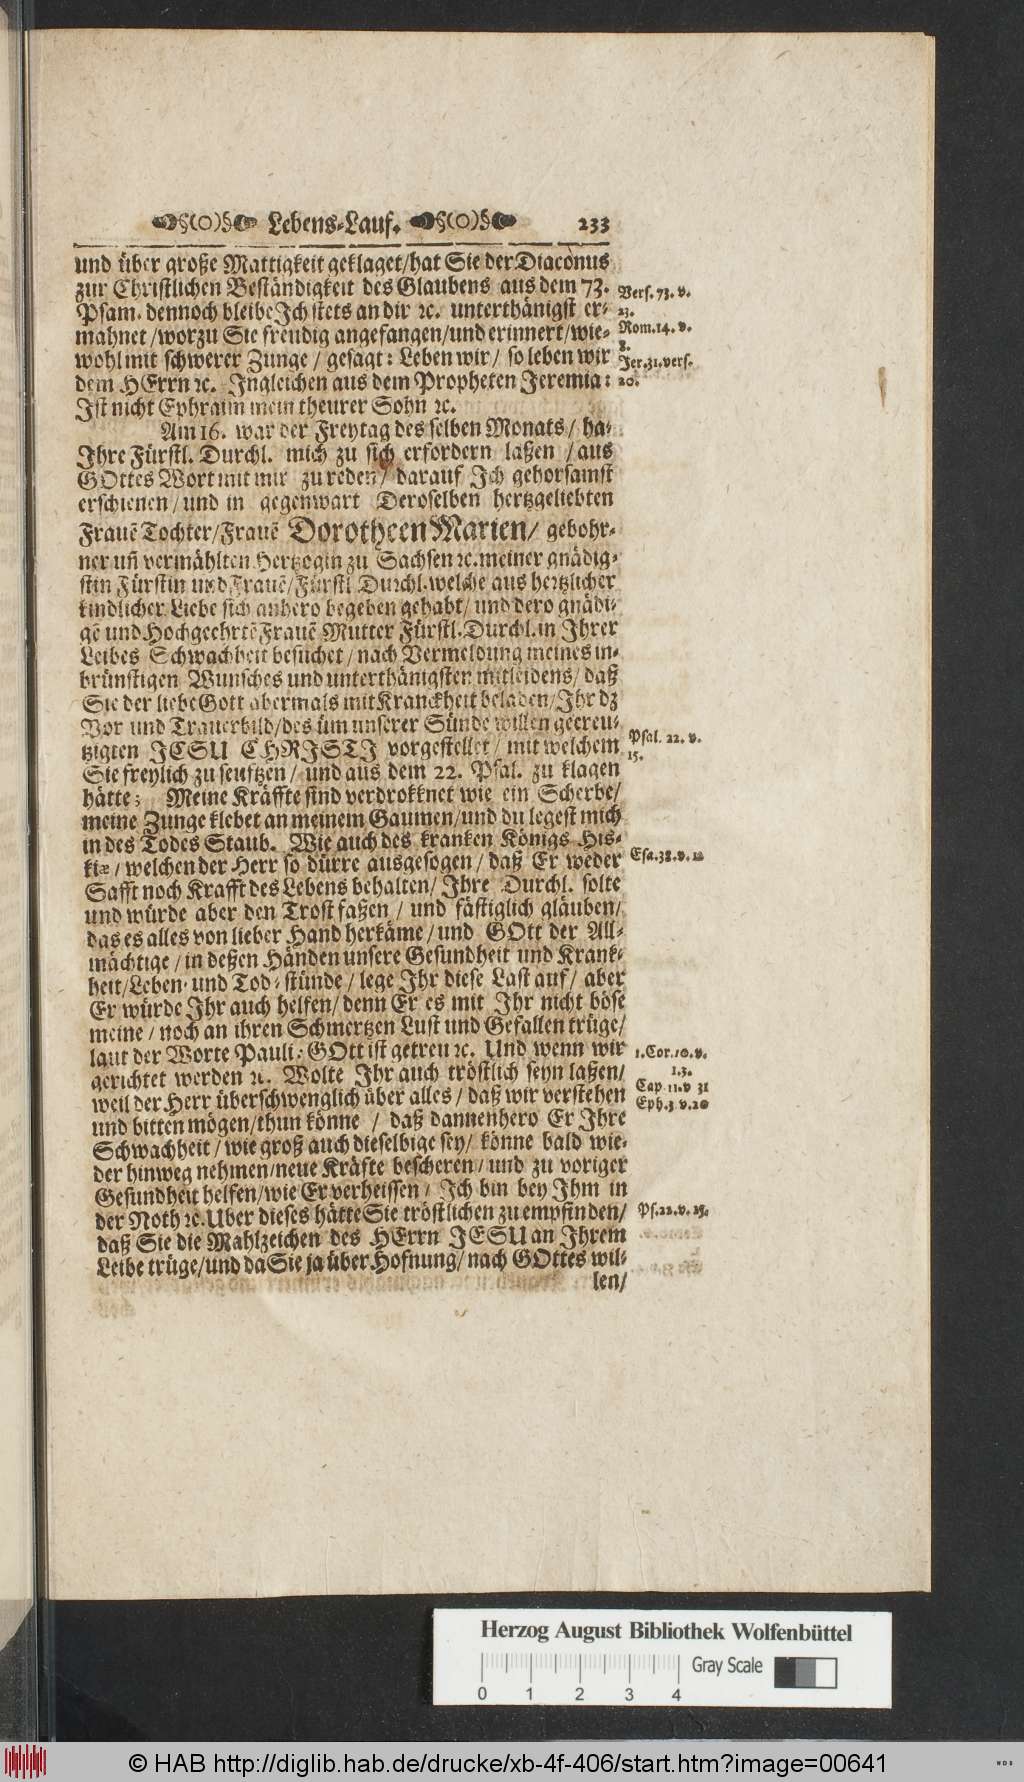 §(O)§ Lebens-Lauf. §(O)§ 233
und über große Mattigkeit geklaget/hat Sie der Diaconus
zur Christlichen Beständigkeit des Glaubens aus dem 73.
Psam. dennoch bleibe Ich stets an dir ꝛc. unterthänigst er-
mahnet/worzu Sie freudig angefangen/und erinnert/wie-
wohl mit schwerer Zunge/ gesagt: Leben wir/ so leben wir
dem HErrn ꝛc. Ingleichen aus dem Propheten Jeremia:
Ist nicht Ephraim mein theurer Sohn ꝛc.
Vers. 73. v.
23.
Rom. 14. v.
8.
Jer. 31. vers.
20.
Am 16. war der Freytag des selben Monats/ ha-
Ihre Fürstl. Durchl. mich zu sich erfordern laßen /aus
GOttes Wort mit mir zu reden/ darauf Ich gehorsamst
erschienen/und in gegenwart Deroselben hertzgeliebten
Frauẽ Tochter/Frauẽ Dorotheen Marien/ gebohr-
ner uñ vermählten Hertzogin zu Sachsen ꝛc. meiner gnädig-
stin Fürstin und Frauẽ/Fürstl. Durchl. welche aus hertzlicher
kindlicher Liebe sich anhero begeben gehabt/ und dero gnädi-
gẽ und Hochgeehrtẽ Frauẽ Mutter Fürstl. Durchl. in Ihrer
Leibes Schwachheit besuchet/nach Vermeldung meines in-
brünstigen Wunsches und unterthänigsten mitleidens/ daß
Sie der liebe Gott abermals mit Kranckheit beladen/Ihr dz
Vor und Trauerbild/des üm unserer Sünde willen gecreu-
tzigten JESU CHRISTI vorgestellet/ mit welchem
Sie freylich zu seuftzen/ und aus dem 22. Psal. zu klagen
hätte; Meine Kräffte sind verdrokknet wie ein Scherbe/
meine Zunge klebet an meinem Gaumen/und du legest mich
in des Todes Staub. Wie auch des kranken Königs His-
kiæ/ welchen der Herr so dürre ausgesogen/ daß Er weder
Safft noch Krafft des Lebens behalten/ Ihre Durchl. solte
und würde aber den Trost faßen / und fästiglich gläuben/
das es alles von lieber Hand herkäme/und GOtt der All-
mächtige/in deßen Händen unsere Gesundheit und Krank-
heit/Leben- und Tod-stünde/ lege Ihr diese Last auf/ aber
Er würde Ihr auch helfen/denn Er es mit Ihr nicht böse
meine/noch an ihren Schmertzen Lust und Gefallen trüge/
laut der Worte Pauli: GOtt ist getreu ꝛc. Und wenn wir
gerichtet werden ꝛc. Wolte Ihr auch tröstlich seyn laßen/
weil der Herr überschwenglich über alles/ daß wir verstehen
und bitten mögen/thun könne / daß dannenhero Er Ihre
Schwachheit/wie groß auch dieselbige sey/ könne bald wie-
der hinweg nehmen/neue Kräfte bescheren/ und zu voriger
Gesundheit helfen/wie Er verheissen/ Ich bin bey Ihm in
der Noth ꝛc. Uber dieses hätte Sie tröstlichen zu empfinden/
daß Sie die Mahlzeichen des HErrn JESU an Ihrem
Leibe trüge/und da Sie ja über Hofnung/ nach GOttes wil-
len/
Psal. 22. v.
15.
Esa. 38. v. 12
1. Cor. 10. v.
13.
Cap. 11. v 31
Eph. 3 v. 20
Herzog August Bibliothek Wolfenbüttel
Gray Scale
0 1 2 3 4
© HAB http://diglib.hab.de/drucke/xb-4f-406/start.htm?image=00641